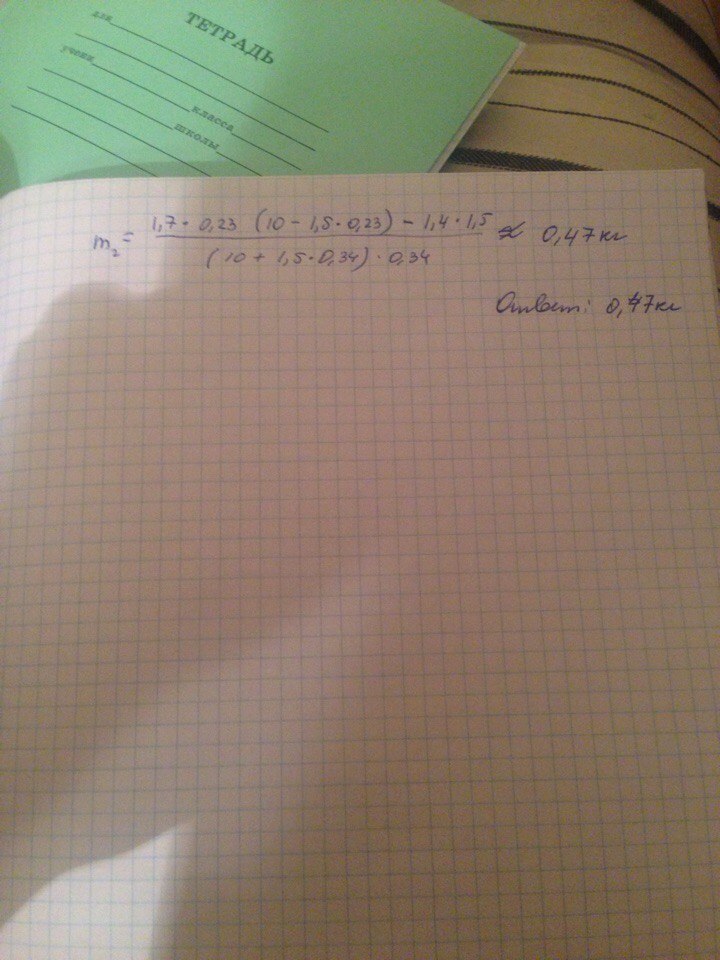 для
ТЕТРАДЬ
учени
класса
школы
m₂ = (1,7 · 0,23 (10 - 1,5 · 0,23) - 1,4 · 1,5) / ((10 + 1,5 · 0,34) · 0,34) ≈ 0,47 кг
Ответ: 0,47 кг